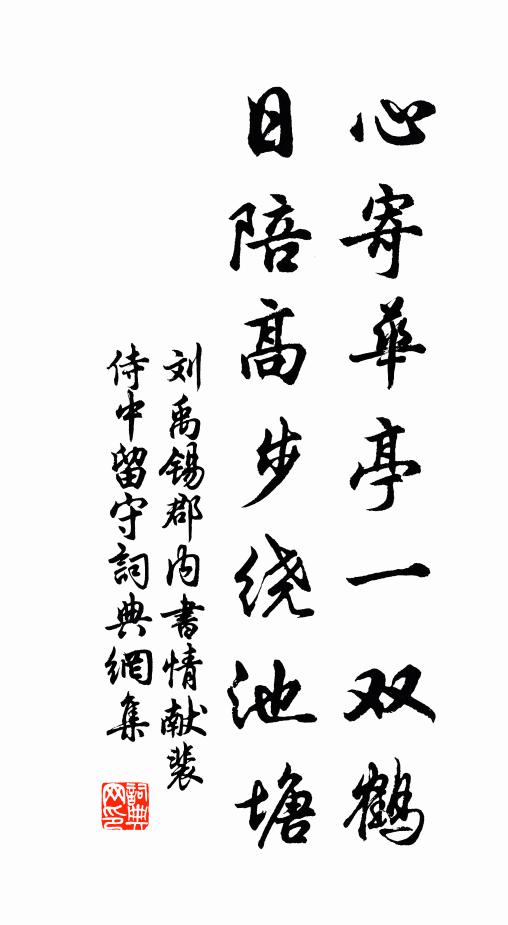 心寄華亭一双鹤
日陪高步绕池塘
刘禹锡郡内書情献裴
侍中留守詞典網集
詞典
网印